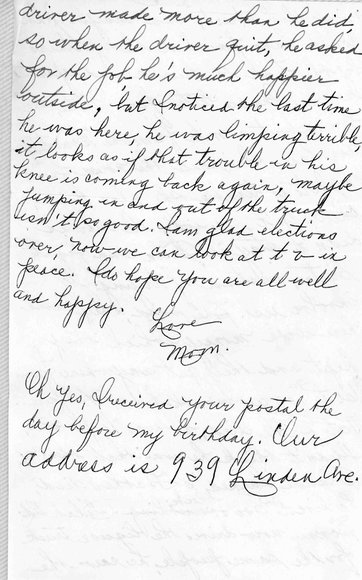 driver made more than he did
so when the driver quit, he asked
for the job, he's much happier
outside, but I noticed the last time
he was here, he was limping terrible,
it looks as if that trouble in his
knee is coming back again, maybe
jumping in and out of the truck
isn't so good. I am glad elections
over, now we can look at t v in
peace. I do hope you are all well
and happy.
Love
Mom.
Oh yes, I received your postal the
day before my birthday. Our
address is 939 Linden Ave.